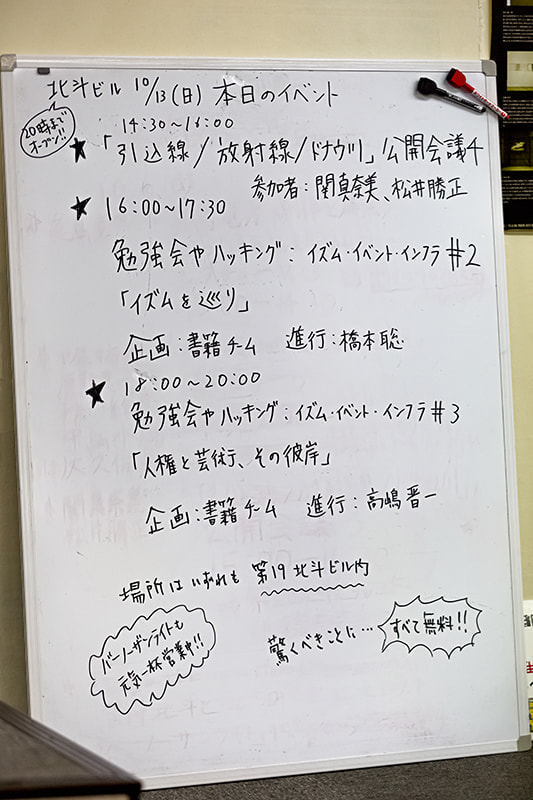 北斗ビル 10/13(日) 本日のイベント
20時まで
オープン!!
14:30〜16:00
★「引込線/放射線/ドナウ川」公開会議4
参加者:関真奈美、松井勝正
★ 16:00〜17:30
勉強会やハッキング:イズム・イベント・インフラ #2
「イズムを巡り」
企画:書籍チーム 進行:橋本聡
★ 18:00〜20:00
勉強会やハッキング:イズム・イベント・インフラ #3
「人権と芸術、その彼岸」
企画:書籍チーム 進行:高嶋晋一
場所はいずれも 第19北斗ビル内
バーノーザンライトも
元気一杯営業中!!
驚くべきことに… すべて無料!!